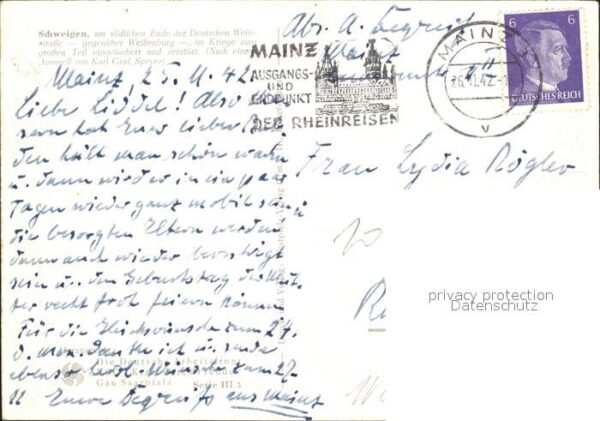 Schweigen, am südlichen Ende der Deutschen Wein-
straße — gegenüber Weißenburg —, im Kriege zum
großen Teil eingeäschert und zerstört. (Nach einem
Aquarell von Karl Graf, Speyer)
Abs. A. Begreif
Mainz
MAINZ
AUSGANGS-
UND
ENDPUNKT
DER RHEINREISEN
MAINZ
v
6 6
DEUTSCHES REICH
Mainz, 25. 11. 42
Liebe Liddel! Also
hat Euer lieber
den hält man schön warm
u. dann wird er in ein paar
Tagen wieder ganz mobil sein u.
die besorgten Eltern werden
dann auch wieder beruhigt
sein u. den Geburtstag der Mut-
ter recht froh feiern können.
Für die Glückwünsche zum 24.
d. Mon. danke ich u. sende
ebensolche zum 27.
11 Eure Begreifs aus Mainz
Frau Lydia Rögler
Die Deutsche Arbeitsfront
Gau Saarpfalz Serie III.5
privacy protection
Datenschutz